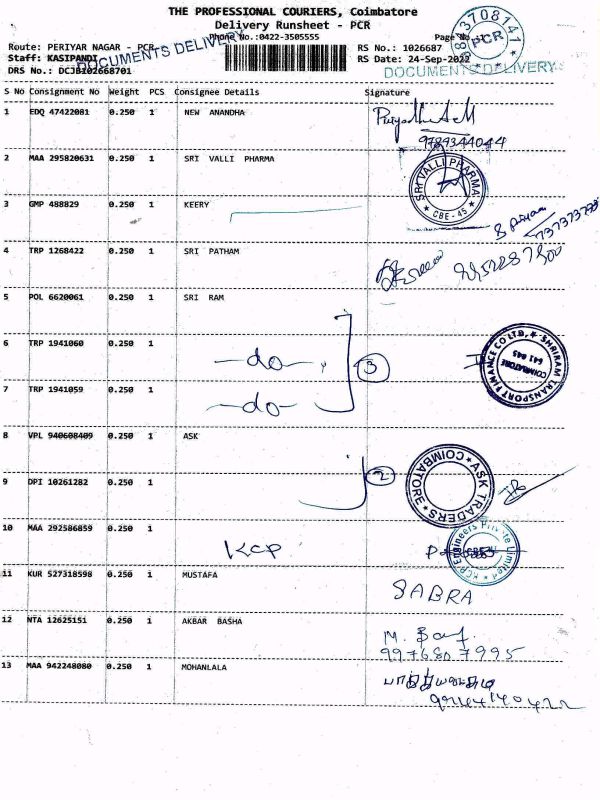 THE PROFESSIONAL COURIERS, Coimbatore
Delivery Runsheet - PCR
Phone No.:0422-3505555
Page No.
Route: PERIYAR NAGAR - PCR
RS No.: 1026687
Staff: KASIPANDI
RS Date: 24-Sep-2022
DRS No.: DCJB202668701
DOCUMENTS DELIVERY
DOCUMENTS DELIVERY
PCR
S No Consignment No Weight PCS Consignee Details Signature
1 EDQ 47422081 0.250 1 NEW ANANDHA
9789344044
2 MAA 295820631 0.250 1 SRI VALLI PHARMA
SRI VALLI PHARMA
CBE - 45
3 GMP 488829 0.250 1 KEERY
4 TRP 1268422 0.250 1 SRI PATHAM
5 POL 6620061 0.250 1 SRI RAM
6 TRP 1941060 0.250 1 -do-
3
SHRIRAM TRANSPORT FINANCE CO LTD,
COIMBATORE
641 045
7 TRP 1941059 0.250 1 -do-
8 VPL 940608409 0.250 1 ASK
9 DPI 10261282 0.250 1
2
ASK TRADERS
COIMBATORE
10 MAA 292586859 0.250 1 KCP
KCP Engineers Private Limited
11 KUR 527318598 0.250 1 MUSTAFA
SABRA
12 NTA 12625151 0.250 1 AKBAR BASHA
9976807995
13 MAA 942248080 0.250 1 MOHANLALA